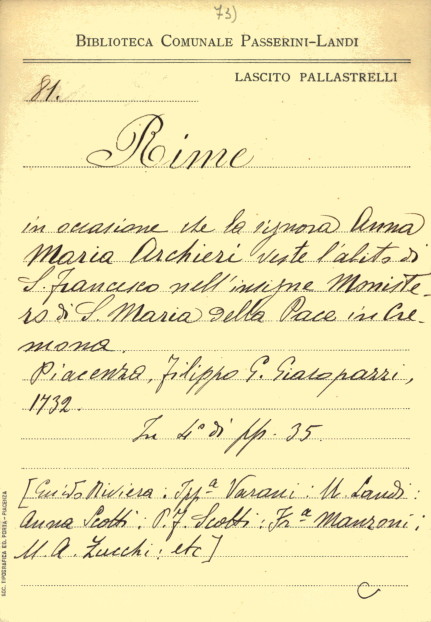 73)
BIBLIOTECA COMUNALE PASSERINI-LANDI
LASCITO PALLASTRELLI
81.
Rime
in occasione che la signora Anna
Maria Archieri veste l'abito di
S. Francesco nell'insigne Moniste-
ro di S. Maria della Pace in Cre-
mona.
Piacenza, Filippo G. Giacopazzi,
1732.
In 4° di pp. 35.
[Guido Riviera: Ippª Varani: U. Landi:
Anna Scotti: P. F. Scotti: Frª Manzoni:
M. A. Zucchi: etc]
C
SOC. TIPOGRAFICA ED. PORTA - PIACENZA